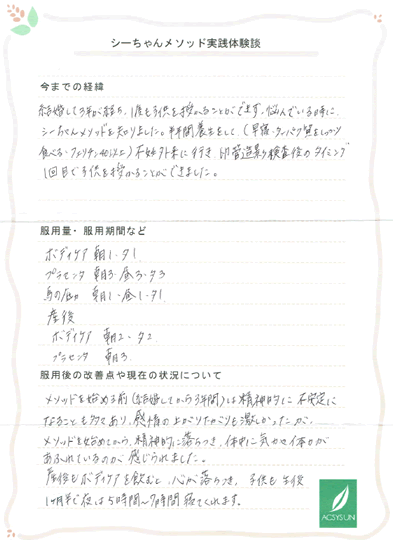 シーちゃんメソッド実践体験談
今までの経緯
結婚して3年が経ち、1度も子供を授かることができず、悩んでいる時に
シーちゃんメソッドを知りました。半年間養生をして、(早寝・タンパク質をしっかり
食べる・フェリチン40以上)不妊外来に行き、卵管造影検査後のタイミング
1回目で子供を授かることができました。
服用量・服用期間など
ボディケア 朝1・夕1
プラセンタ 朝3・昼3・夕3
馬の 朝1・昼1・夕1
産後
ボディケア 朝2・夕2
プラセンタ 朝3
服用後の改善点や現在の状況について
メソッドを始める前(結婚してから3年間)は精神的に不安定に
なることも多々あり、感情の上がり下がりも激しかったが、
メソッドを始めてから、精神的に落ちつき、体中に気や体力が
あふれているのが感じられました。
産後もボディケアを飲むと、心が落ちつき、子供も生後
1ヶ月半で夜は5時間~7時間寝てくれます。
ACSYSUN